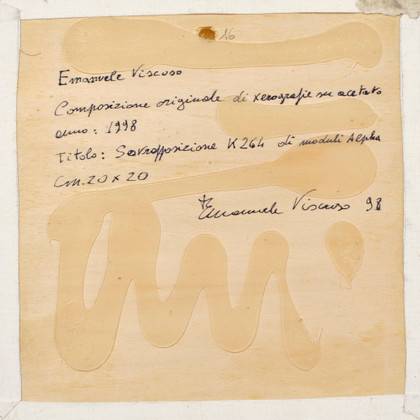 16
Emanuele Viscuso
Composizione originale di xerografie su acetato
anno: 1998
Titolo: Sovrapposizione K264 di moduli Alpha
cm. 20 x 20
Emanuele Viscuso 98